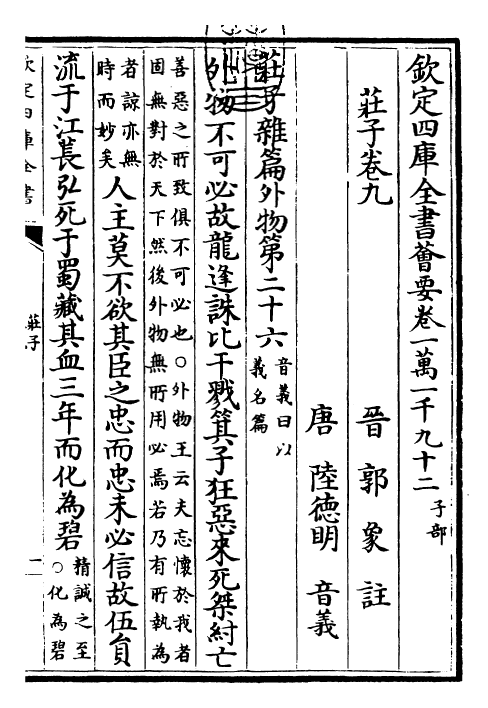 欽定四庫全書薈要卷一萬一千九十二 子部
莊子卷九
晉 郭象 註
唐 陸德明 音義
莊子雜篇外物第二十六 音義曰以
義名篇
外物不可必故龍逢誅比干戮箕子狂惡來死桀紂亡
善惡之所致俱不可必也○外物王云夫忘懷於我者
固無對於天下然後外物無所用必焉若乃有所執為
者諒亦無
時而妙矣
人主莫不欲其臣之忠而忠未必信故伍員
流于江萇弘死于蜀藏其血三年而化為碧 精誠之至
○化為碧
欽定四庫全書
莊子
一